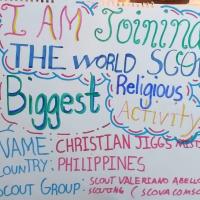 I AM Joining
THE WORLD SCO
Biggest Religious
Activity
NAME: CHRISTIAN JIGGS
COUNTRY: PHILIPPINES
SCOUT GROUP: SCOUT VALERIANO ABELLO